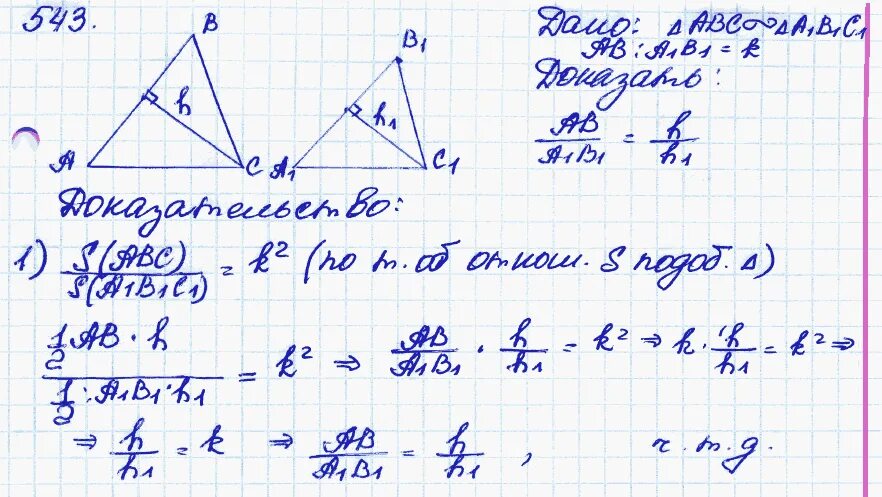 543.
B
h
A
C
B₁
h₁
A₁
C₁
Дано: △ABC∾△A₁B₁C₁
AB : A₁B₁ = k
Доказать:
AB/A₁B₁ = h/h₁
Доказательство:
1) S(ABC)/S(A₁B₁C₁) = k² (по т. об отнош. S подоб. △)
(1/2 AB · h)/(1/2 · A₁B₁ · h₁) = k² ⇒ AB/A₁B₁ · h/h₁ = k² ⇒ k · h/h₁ = k² ⇒
⇒ h/h₁ = k ⇒ AB/A₁B₁ = h/h₁, ч.т.д.